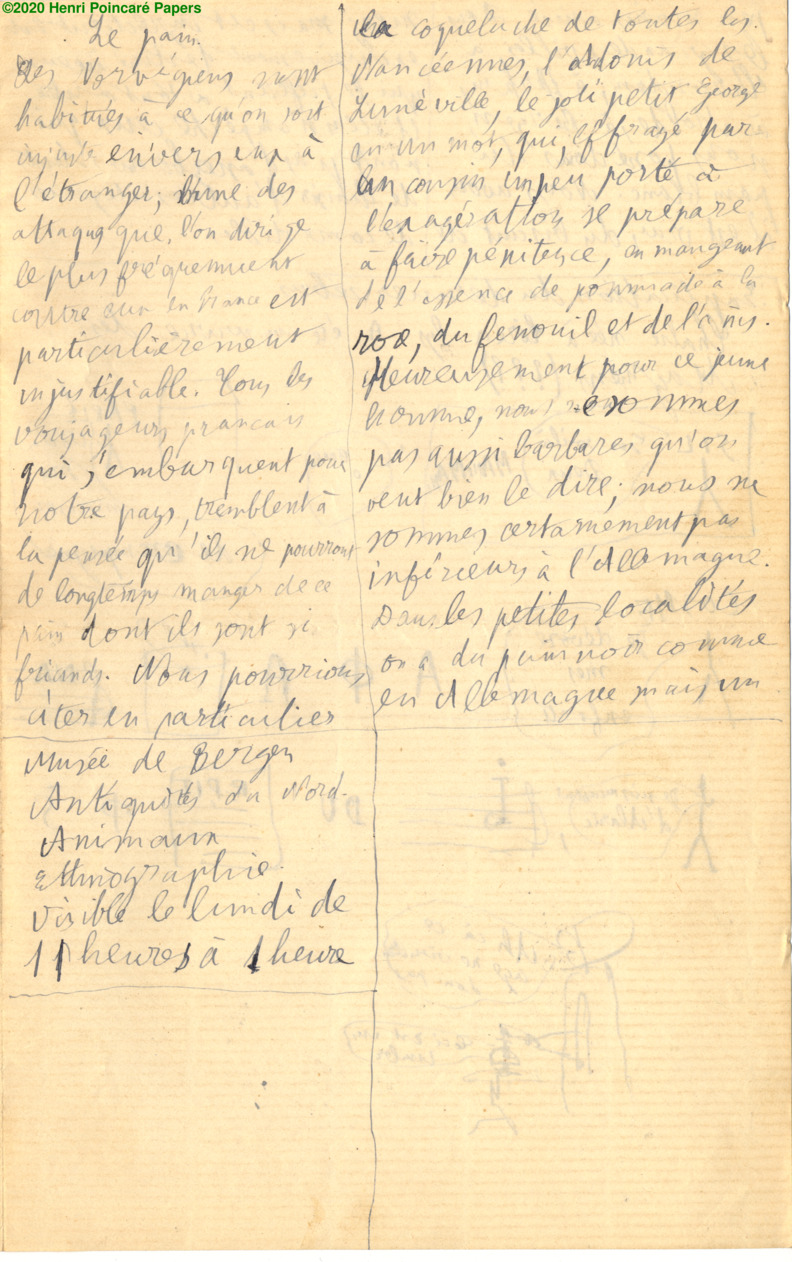 ©2020 Henri Poincaré Papers
Le pain.
Les Norvégiens sont
habitués à ce qu'on soit
injuste envers eux à
l'étranger; l'une des
attaques que l'on dirige
le plus fréquemment
contre eux en France est
particulièrement
injustifiable. Tous les
voyageurs français
qui s'embarquent pour
notre pays, tremblent à
la pensée qu'ils ne pourront
de longtemps manger de ce
pain dont ils sont si
friands. Nous pourrions
citer en particulier
la coqueluche de toutes les
Nancéennes, l'Adonis de
Lunéville, le joli petit George
en un mot, qui, effrayé par
un cousin un peu porté à
l'exagération se prépare
à faire pénitence, en mangeant
de l'essence de pommade à la
rose, du fenouil et de l'anis.
Heureusement pour ce jeune
homme, nous ne sommes
pas aussi barbares qu'on
veut bien le dire; nous ne
sommes certainement pas
inférieurs à l'Allemagne.
Dans les petites localités
on a du pain noir comme
en Allemagne mais un
Musée de Bergen
Antiquités du Nord.
Animaux
Ethnographie.
Visible le lundi de
11 heures à 1 heure